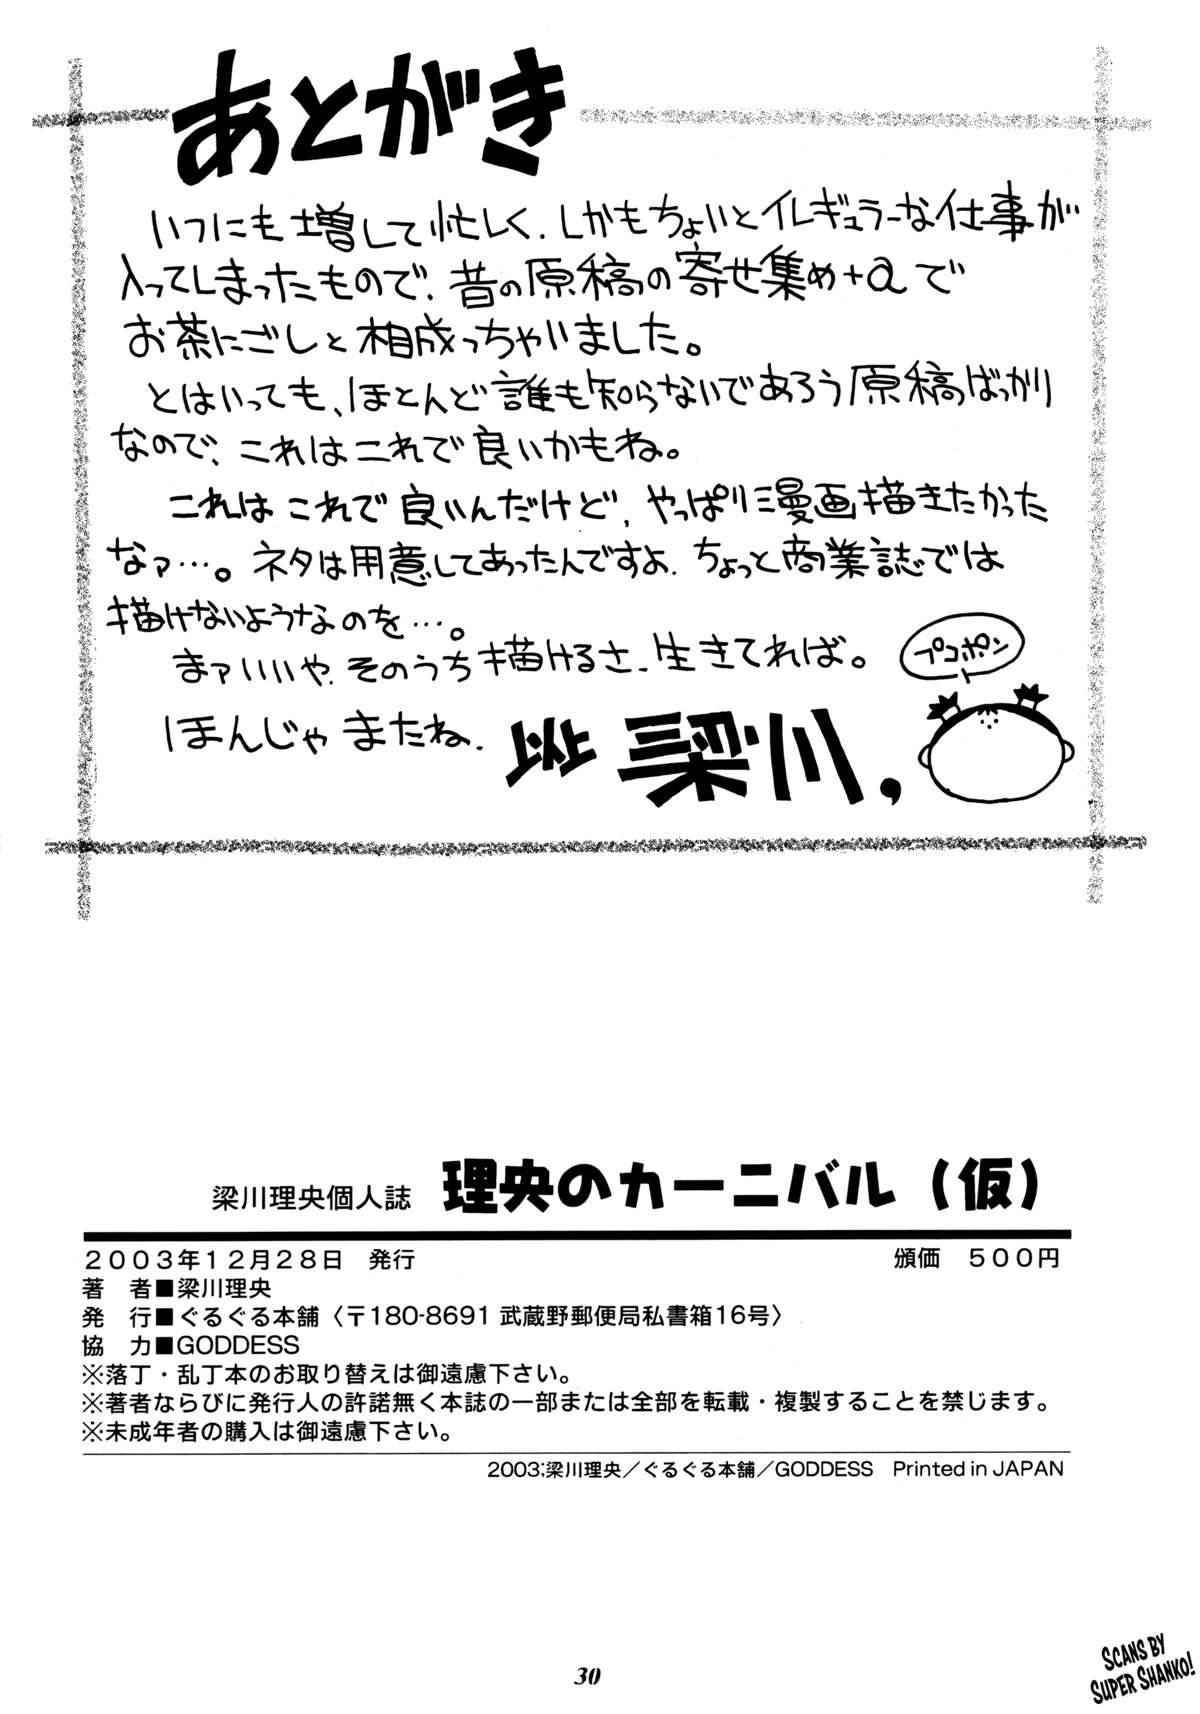 あとがき
いつにも増して忙しく、しかもちょいとイレギュラーな仕事が
入ってしまったもので、昔の原稿の寄せ集め+αで
お茶にごしと相成っちゃいました。
とはいっても、ほとんど誰も知らないであろう原稿ばっかり
なので、これはこれで良いかもね。
これはこれで良いんだけど、やっぱり漫画描きたかった
なァ…。ネタは用意してあったんですよ、ちょっと商業誌では
描けないようなのを…。
まァいいや、そのうち描けるさ、生きてれば。
プコポン
ほんじゃまたね、以上 梁川,
梁川理央個人誌 理央のカーニバル（仮）
2003年12月28日 発行 頒価 500円
著 者■梁川理央
発 行■ぐるぐる本舗〈〒180-8691 武蔵野郵便局私書箱16号〉
協 力■GODDESS
※落丁・乱丁本のお取り替えは御遠慮下さい。
※著者ならびに発行人の許諾無く本誌の一部または全部を転載・複製することを禁じます。
※未成年者の購入は御遠慮下さい。
2003;梁川理央／ぐるぐる本舗／GODDESS Printed in JAPAN
30
SCANS BY
SUPER SHANKO!